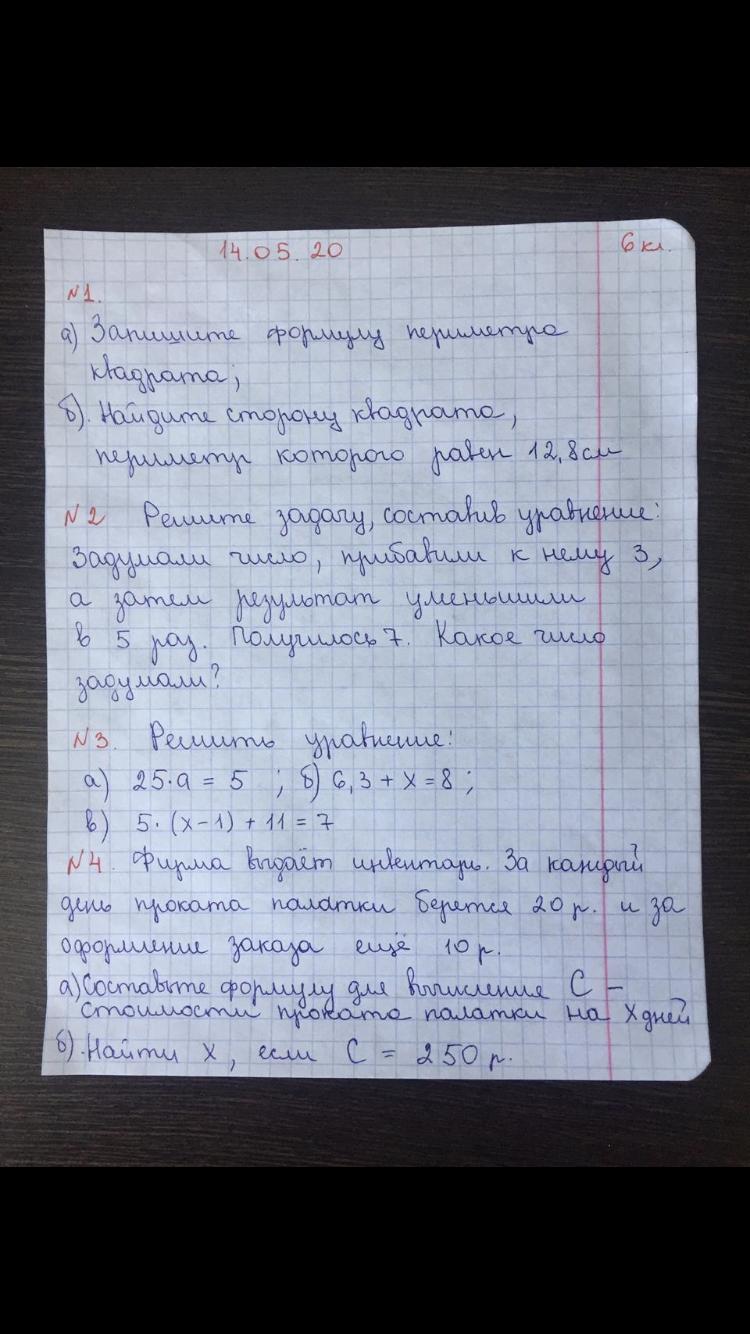 14.05.20 6 кл.
№1.
а) Запишите формулу периметра
квадрата;
б). Найдите сторону квадрата,
периметр которого равен 12,8см
№2 Решите задачу, составив уравнение:
Задумали число, прибавили к нему 3,
а затем результат уменьшили
в 5 раз. Получилось 7. Какое число
задумали?
№3. Решить уравнение:
а) 25·а = 5 ; б) 6,3 + х = 8 ;
в) 5·(х-1) + 11 = 7
№4. Фирма выдаёт инвентарь. За каждый
день проката палатки берется 20 р. и за
оформление заказа ещё 10 р.
а) Составьте формулу для вычисления С –
стоимости проката палатки на х дней
б). Найти х, если С = 250 р.